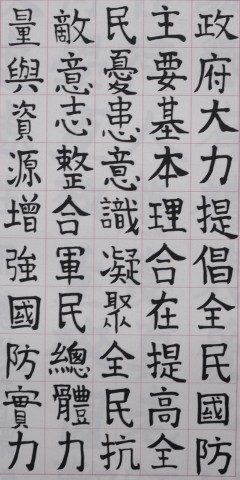 政府大力提倡全民國防
主要基本理合在提高全
民憂患意識凝聚全民抗
敵意志整合軍民總體力
量與資源增強國防實力